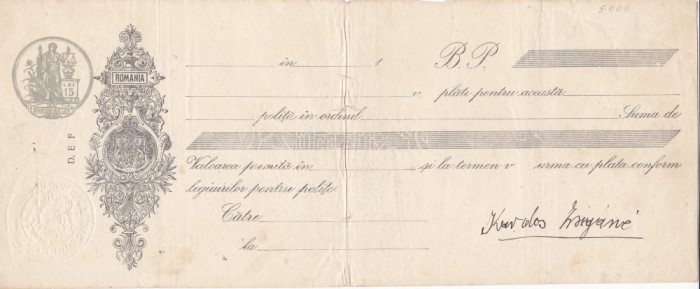 5000
în 1 B.P.
ROMANIA
LEI 15
v plăti pentru această
D. E. F
poliță în ordinul Suma de
Valoarea primită în și la termen v urma cu plata conform
legiuirilor pentru polițe
Către
la